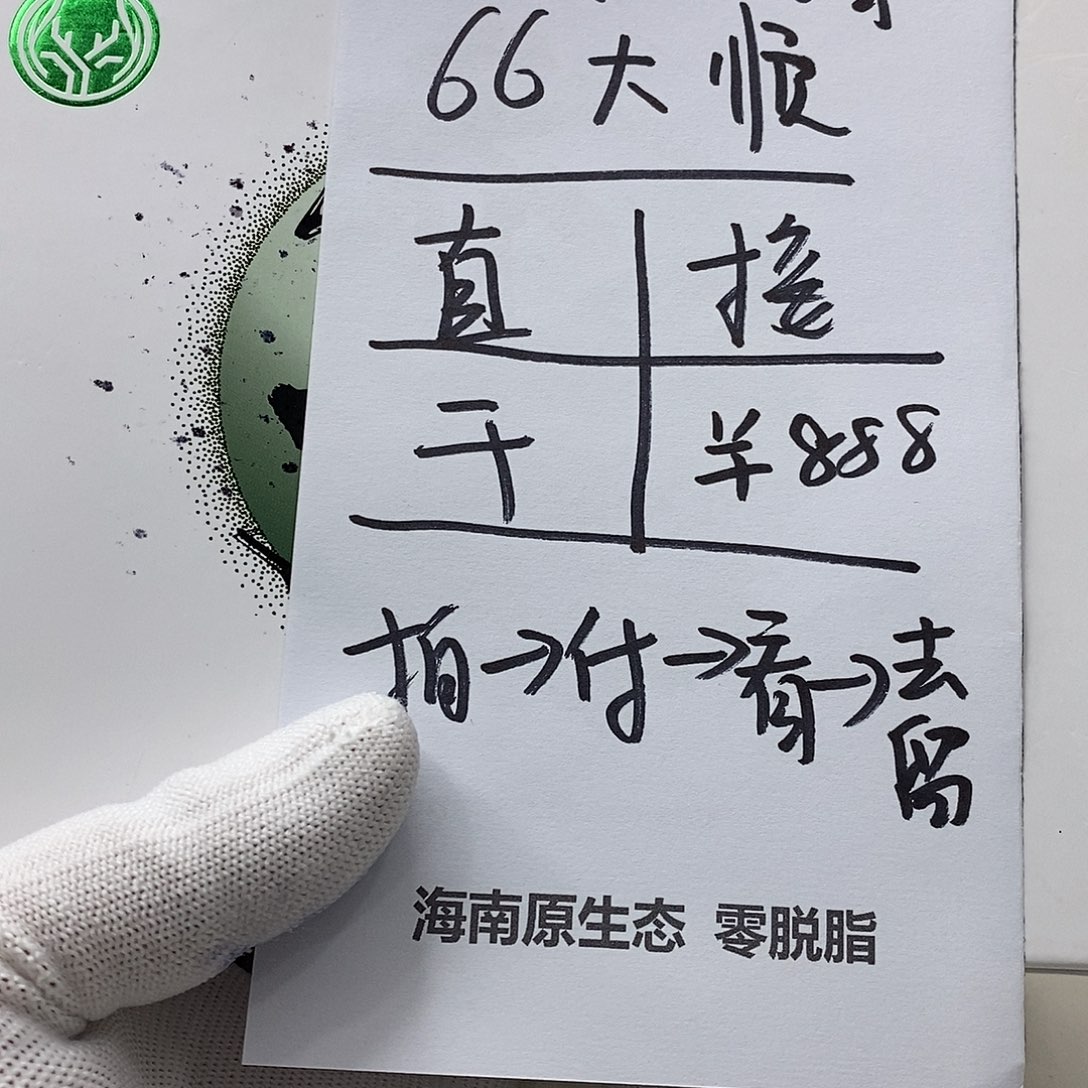 66大顺
直 接
干 ¥888
拍→付→看→去
留
海南原生态 零脱脂